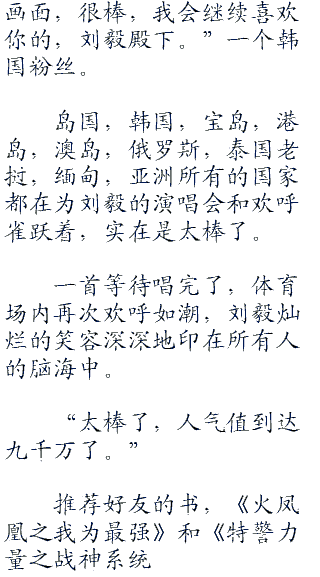 画面，很棒，我会继续喜欢
你的，刘毅殿下。”一个韩
国粉丝。
岛国，韩国，宝岛，港
岛，澳岛，俄罗斯，泰国老
挝，缅甸，亚洲所有的国家
都在为刘毅的演唱会和欢呼
雀跃着，实在是太棒了。
一首等待唱完了，体育
场内再次欢呼如潮，刘毅灿
烂的笑容深深地印在所有人
的脑海中。
“太棒了，人气值到达
九千万了。”
推荐好友的书，《火凤
凰之我为最强》和《特警力
量之战神系统